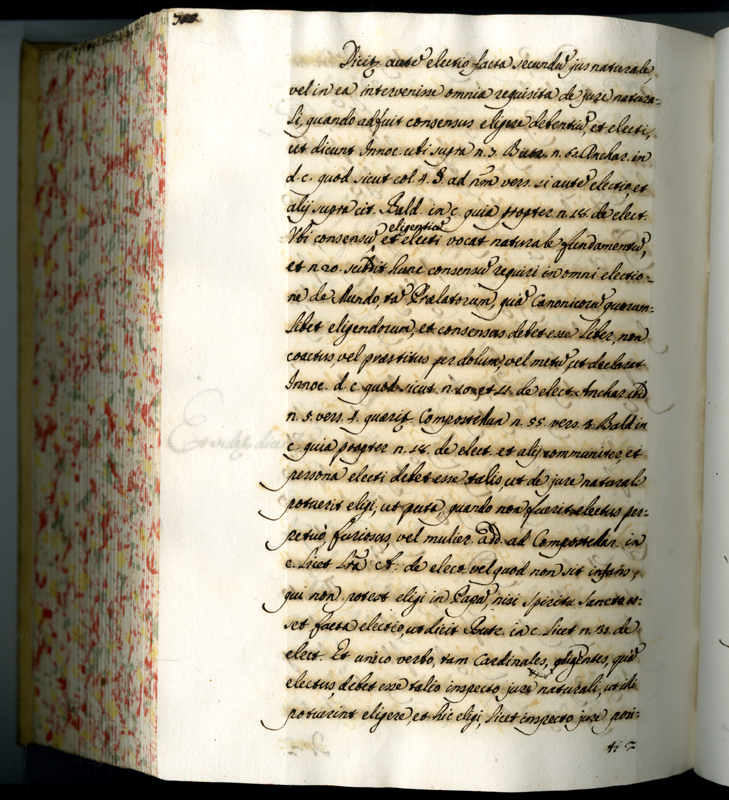 Dicit autẽ electio facta secundũ jus naturale,
vel in ea intervenisse omnia requisita de jure natura-
li, quando adfuit consensus eligere debentiũ, et electi,
ut dicunt Innoc. ubi supra n. 7. Butr. n. 62 Anchar. in
d. c. quod sicut col. 4. ad vers. si autẽ electio, et
alij supra cit. Bald. in c. quia propter n. 18. de elect.
eligentiũ
Vbi consensũ et electi vocat naturale fundamentũ,
et n. 20. scribit hunc consensũ requiri in omni electio-
ne de Mundo, tã Prælatorum, quã Canonicorũ quorum-
libet eligendorum, et consensus debet esse liber, non
coactus, vel præstitus per dolum, vel metũ, ut declarat
Innoc. d. c. quod sicut n. 10. et 11. de elect. Anchar. ibi
n. 5. vers. 4. quærit. Compostellan. n. 55. vers. 3. Bald. in
c. quia propter n. 18. de elect. et alij communiter, et
persona electi debet esse talis, ut de jure naturali
potuerit eligi, ut puta, quando non fuerit electus per-
petuo furiosus, vel mulier. add. ad Compostellan. in
c. licet de elect. vel quod non sit infans,
qui non potest eligi in Papã, nisi Spiritu Sancto es-
set facta electio, ut dicit Butr. in c. licet n. 13. de
elect. Et unico verbo, tam Cardinales, eligentes, quã
electus, debet esse talis inspecto jure naturali, ut illi
potuerint eligere, et hic eligi, licet inspecto jure posi-
ti